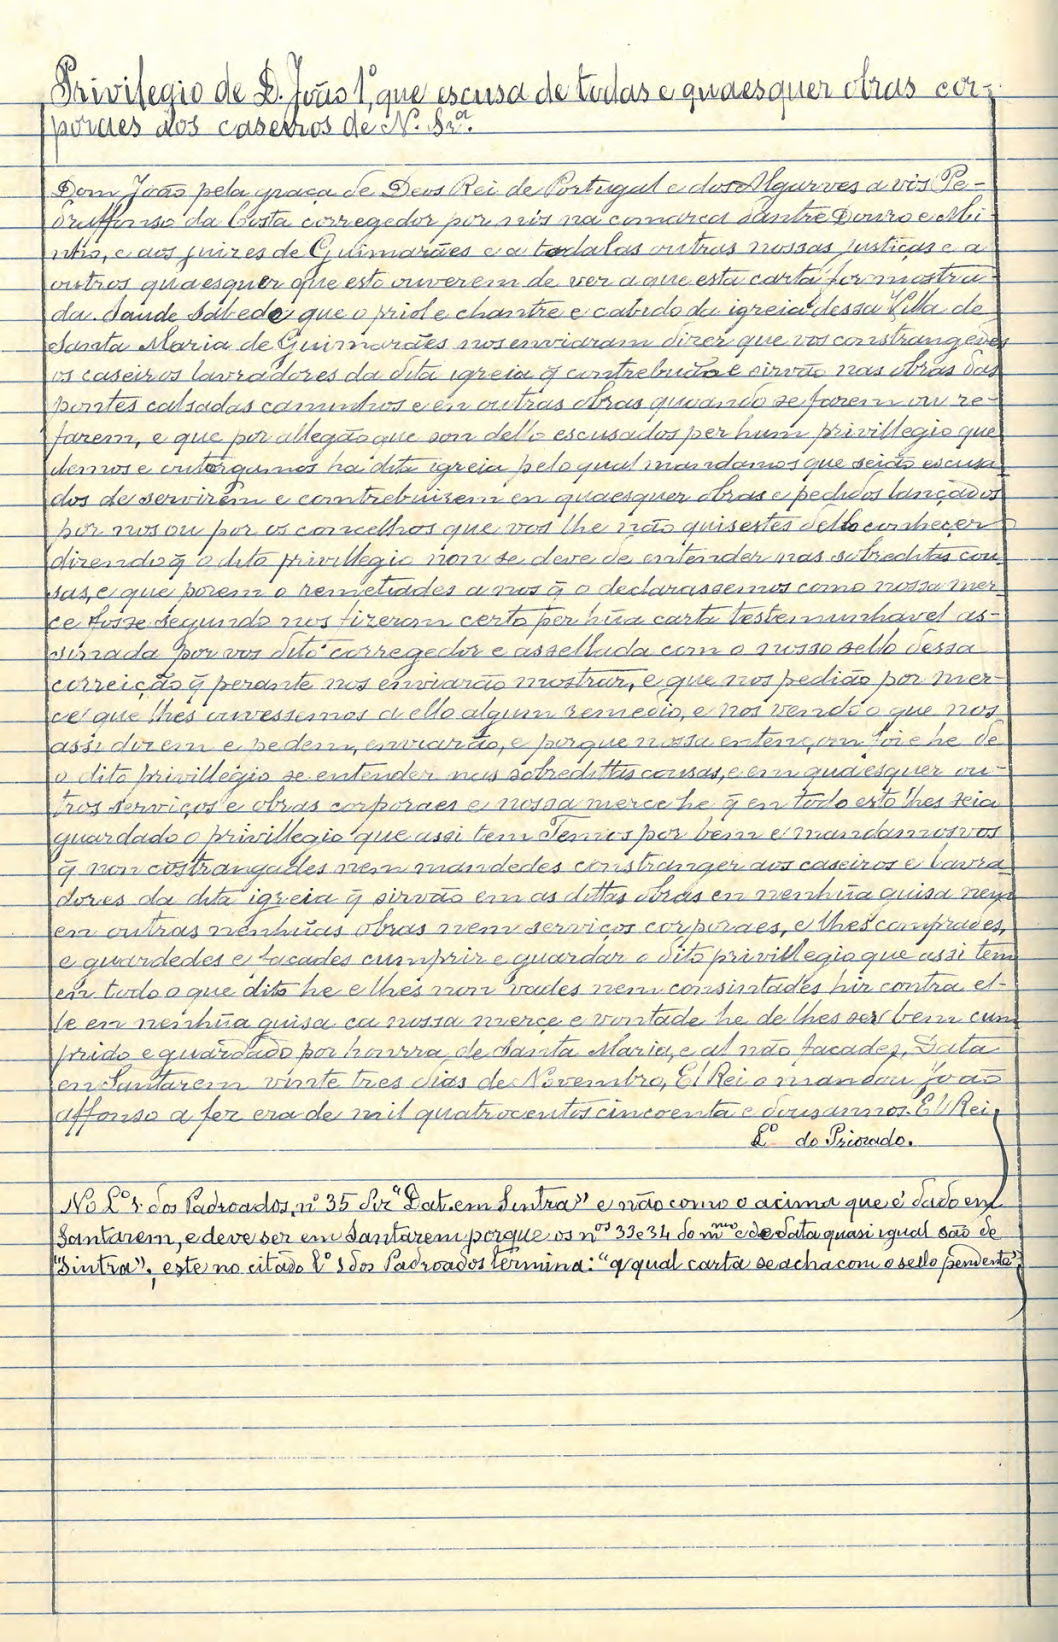 Privilegio de D. João 1º, que escusa de todas e quaesquer obras cor-
poraes aos caseiros de N. Srª.
Dom João pela graça de Deos Rei de Portugal e dos Algarves a vós Pe-
draffonso da Costa corregedor por nós na comarca dantre Douro e Mi-
nho, e aos juizes de Guimarães e a todalas outras nossas justiças e a
outros quaesquer que esto ouverem de ver a que esta carta for mostra-
da. Saude Sabede que o priol e chantre e cabido da igreia dessa Villa de
Santa Maria de Guimarães nos enviaram dizer que vos constrangedes
os caseiros lavradores da dita igreia q̃ contrebuão e sirvão nas obras das
pontes calsadas caminhos e en outras obras quando se fazem ou re-
fazem, e que por allegão que son dello escusados per hum privillegio que
demos e outorgamos ha dita igreia pelo qual mandamos que seião escusa
dos de servirem e contrebuirem en quaesquer obras e pedidos lançados
por nos ou por os concelhos que vos lhe não quisestes dello conhecer
dizendo q̃ o dito privillegio non se deve de entender nas sobreditas cou-
sas, e que porem o remetiades a nos q̃ o declarassemos como nossa mer-
ce fosse segundo nos fizeram certo per hũa carta testemunhavel as-
sinada por vos dito corregedor e assellada com o nosso sello dessa
correição q̃ perante nos enviarão mostrar, e que nos pedião por mer-
ce que lhes ouvessemos a ello algum remedio, e nos vendo o que nos
assi dizem e pedem, enviarão, e porque nossa entençom foi e he de
o dito privillegio se entender nas sobredittas cousas, e em quaesquer ou-
tros serviços e obras corporaes e nossa merce he q̃ en todo esto lhes seia
guardado o privillegio que assi tem Temos por bem e mandamosvos
q̃ non costrangades nem mandedes constranger aos caseiros e lavra
dores da dita igreia q̃ sirvão em as dittas obras en nenhũa guisa nem
em outras nenhũas obras nem serviços corporaes, e lhes comprades,
e guardedes e facades cumprir e guardar o dito privillegio que assi tem
em todo o que dito he e lhes non vades nem consintades hir contra el-
le en nenhũa guisa ca nossa merçe e vontade he de lhes ser bem cum
prido e guardado por honrra de Santa Maria, e al não facades. Data
en Santarem vinte tres dias de Novembro, El Rei o mandou João
affonso a fez era de mil quatrocentos cincoenta e dous annos. El Rei.
Lº do Priorado.
No Lº 1. dos Padroados, nº 35 diz "Dat. em Sintra" e não como o acima que é dado em
Santarem, e deve ser em Santarem porque os nºs 33 e 34 do mmo e de data quasi igual são de
"Sintra"; este no citado Lº 1 dos Padroados termina: "q̃ qual carta se acha com o sello pendente".